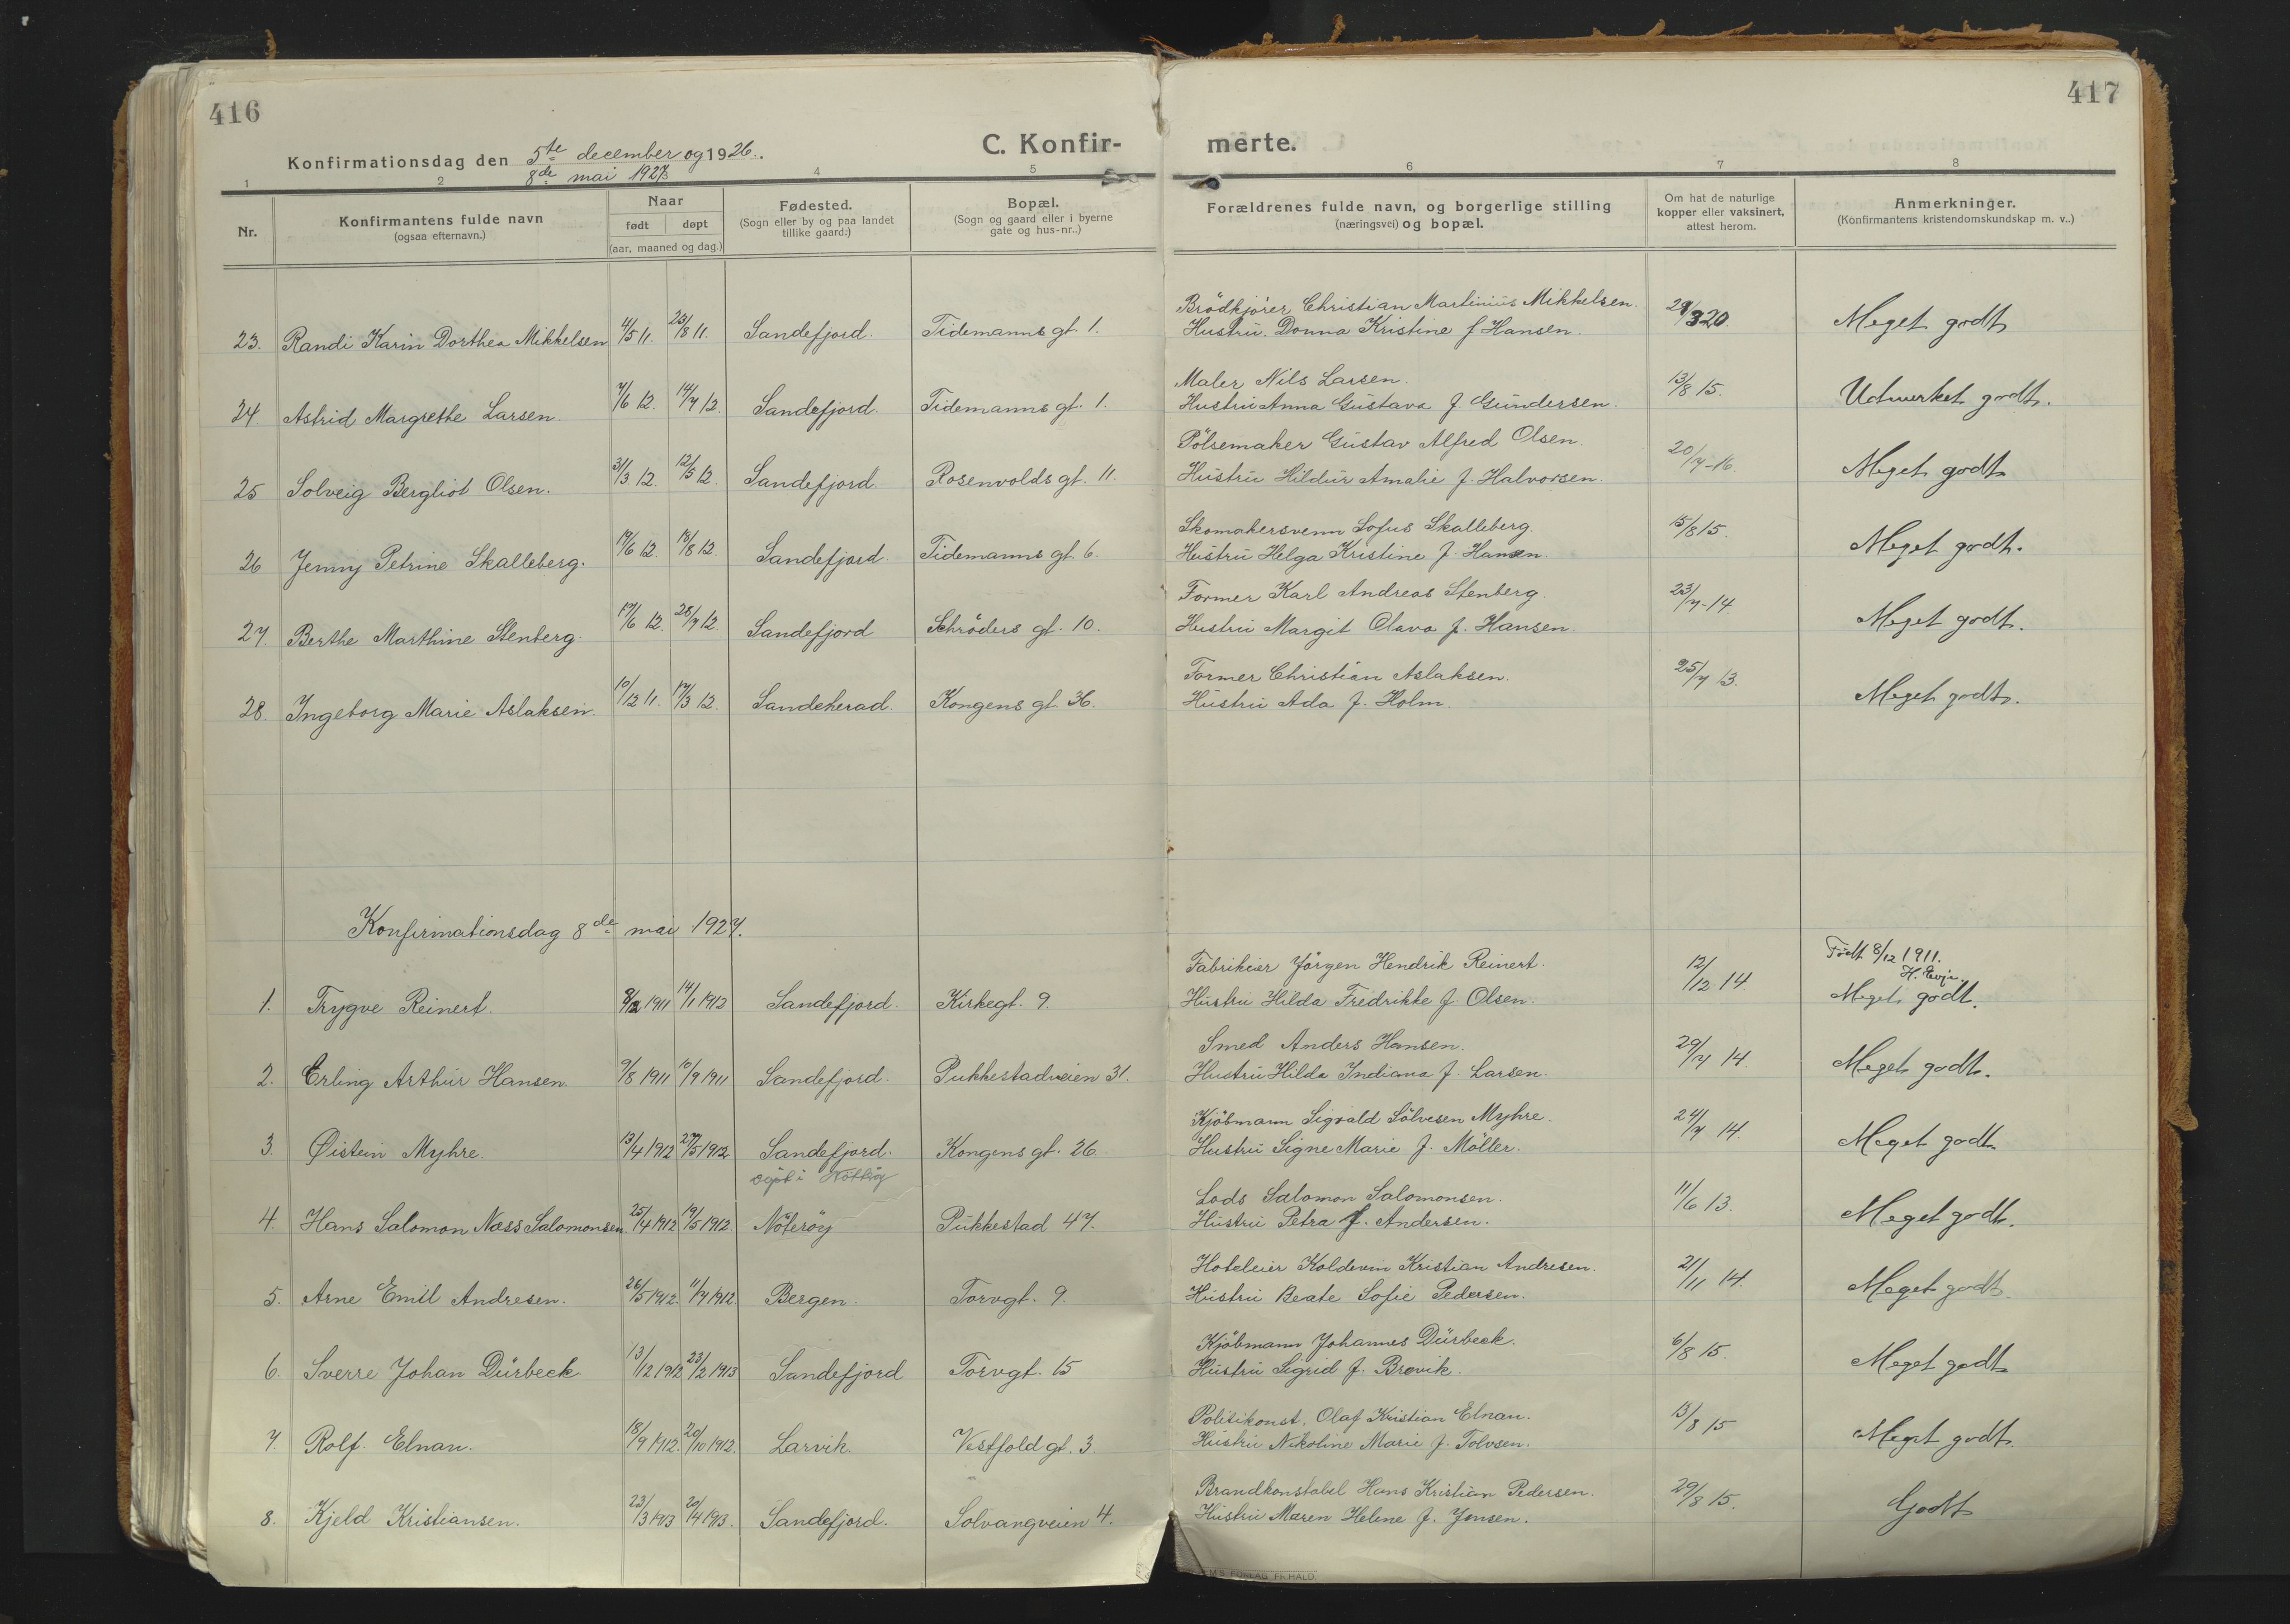 416
417
Konfirmationsdag den 5te december og 1926.
8de mai 1927
C. Konfir-
merte.
1 2 4 5 6 7 8
Nr.
Konfirmantens fulde navn
(ogsaa efternavn.)
Naar
født døpt
(aar, maaned og dag.)
Fødested.
(Sogn eller by og paa landet
tillike gaard.)
Bopæl.
(Sogn og gaard eller i byerne
gate og hus-nr..)
Forældrenes fulde navn, og borgerlige stilling
(næringsvei) og bopæl.
Om hat de naturlige
kopper eller vaksinert,
attest herom.
Anmerkninger.
(Konfirmantens kristendomskundskap m. v..)
Brödkjörer Christian Martinius Mikkelsen.
23. Randi Karin Dorthea Mikkelsen 4/5 11. 23/8 11. Sandefjord. Tidemanns gt. 1. Hustru. Donna Kristine f Hansen. 29/3 20. Meget godt
Maler Nils Larsen.
24. Astrid Margrethe Larsen. 7/6 12. 14/7 12. Sandefjord. Tidemanns gt. 1. Hustru Anna Gustava f. Gundersen. 13/8 15. Udmerket godt.
Pölsemaker Gustav Alfred Olsen.
25 Solveig Bergliot Olsen. 31/3 12. 12/5 12. Sandefjord. Rosenvolds gt. 11. Hustru Hildur Amalie f. Halvorsen. 20/7-16. Meget godt
Skomakersvenn Sofus Skalleberg.
26 Jenny Petrine Skalleberg. 19/6 12. 18/8 12. Sandefjord. Tidemanns gt. 6. Hustru Helga Kristine f. Hansen. 15/8 15. Meget godt.
Former Karl Andreas Stenberg.
27. Berthe Marthine Stenberg. 17/6 12. 28/7 12. Sandefjord Schröders gt. 10. Hustru Margit Olava f. Hansen. 23/7-14 Meget godt.
Former Christian Aslaksen.
28. Ingeborg Marie Aslaksen. 10/12 11. 17/3 12. Sandeherad. Kongens gt. 36. Hustru Ada f. Holm. 25/7 13. Meget godt.
Konfirmationsdag 8de mai 1927.
Født 8/12 1911.
H. Evje.
Fabrikeier Jörgen Hendrik Reinert.
1. Trygve Reinert. 8/12 1911 14/1 1912 Sandefjord. Kirkegt. 9. Hustru Hilda Fredrikke f. Olsen. 12/12 14. Meget godt.
Smed Anders Hansen.
2. Erling Arthur Hansen. 9/8 1911 10/9 1911 Sandefjord. Pukkestadveien 31. Hustru Hilda Indiana f. Larsen. 29/7 14. Meget godt.
Kjöbmann Sigvald Sölvesen Myhre.
3. Øistein Myhre. 13/4 1912 27/5 1912 Sandefjord. Kongens gt. 26. Hustru Signe Marie f. Möller. 24/7 14. Meget godt
Lods Salomon Salomonsen.
4. Hans Salomon Næss Salomonsen. 25/4 1912 19/5 1912 Nøterøy Pukkestad 47. Hustru Petra f. Andersen. 11/6 13. Meget godt.
Hoteleier Koldevin Kristian Andresen.
5. Arne Emil Andresen. 26/5 1912. 11/7 1912 Bergen. Torvgt. 9. Hustru Beate Sofie Pedersen. 21/11 14. Meget godt
Kjöbmann Johannes Dürbeck.
6. Sverre Johan Dürbeck 13/12 1912 23/2 1913 Sandefjord Torvgt. 15 Hustru Sigrid f. Brovik. 6/8 15. Meget godt
Politikonst. Olaf Kristian Elnan.
7. Rolf Elnan. 18/9 1912. 20/10 1912. Larvik. Vestfold gt. 3. Hustru Nikoline Marie f. Tolvsen. 13/8 15 Meget godt
Brandkonstabel Hans Kristian Pedersen.
8. Kjeld Kristiansen. 23/3 1913 20/4 1913. Sandefjord. Solvangveien 4. Hustru Maren Helene f. Jensen. 29/8 15. Godt
FORLAG FR. HALD.